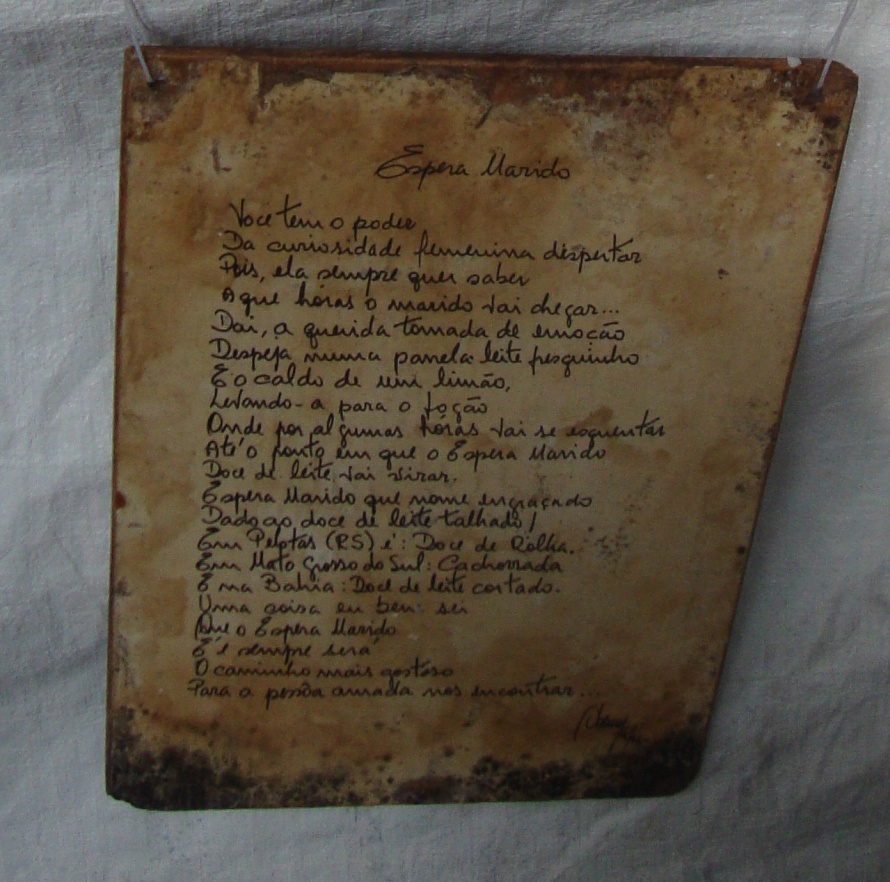 Espera Marido
Voce tem o poder
Da curiosidade feminina despertar
Pois, ela sempre quer saber
A que hóras o marido vai chegar...
Dai, a querida tomada de emoção
Despeja numa panela leite fresquinho
E o caldo de um limão,
Levando-a para o fogão
Onde por algumas hóras vai se esquentar
Até o ponto em que o Espera Marido
Doce de leite vai virar.
Espera Marido que nome engraçado
Dado ao doce de leite talhado!
Em Pelotas (RS) é: Doce de Rolha.
Em Mato Grosso do Sul: Cachorrada
E na Bahia: Doce de leite cortado.
Uma coisa eu bem sei
Que o Espera Marido
É e sempre será
O caminho mais gostoso
Para a pessôa amada nos encontrar...